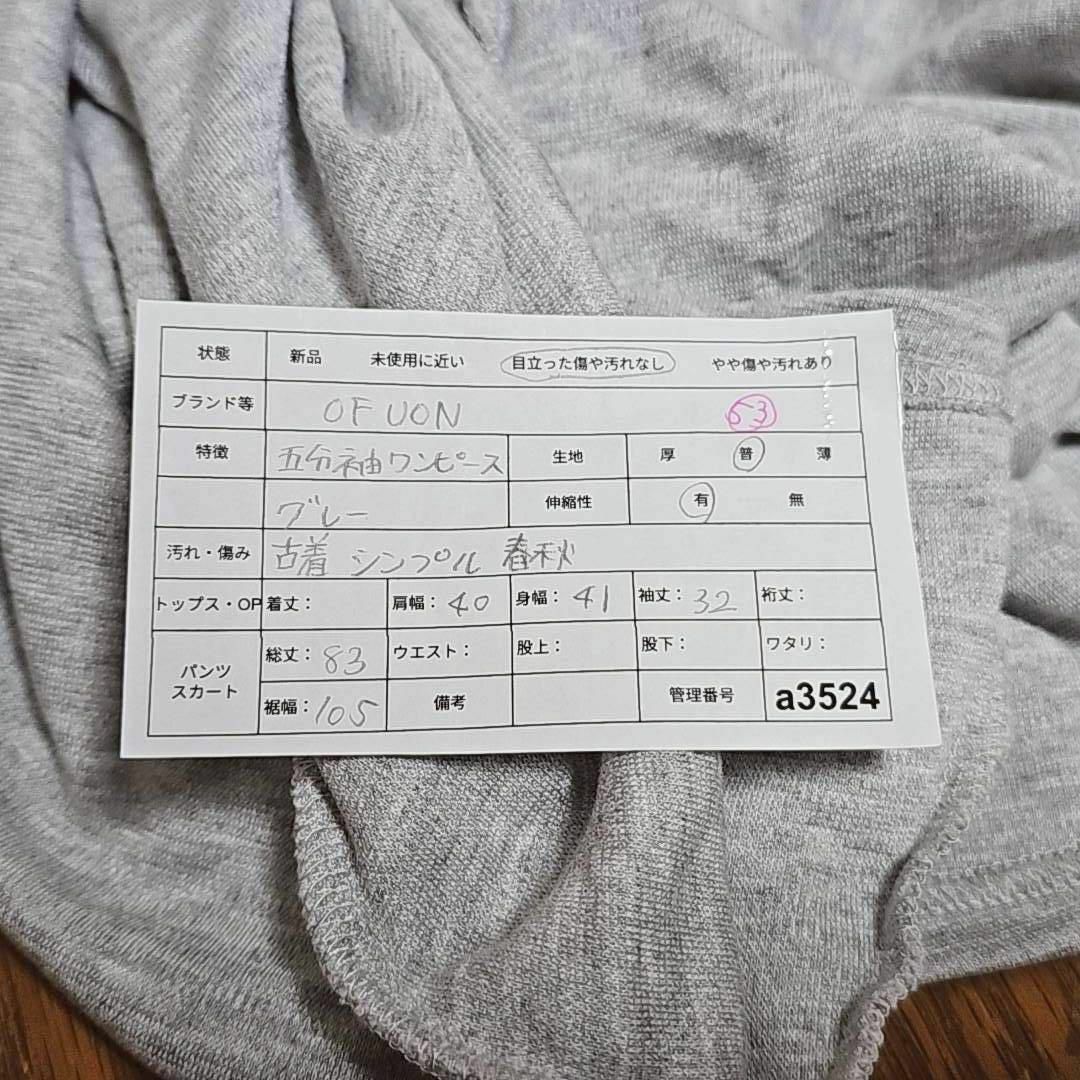 状態 新品 未使用に近い 目立った傷や汚れなし やや傷や汚れあり
ブランド等 OFUON 53
特徴 五分袖ワンピース 生地 厚 普 薄
グレー 伸縮性 有 無
汚れ・傷み 古着 シンプル 春秋
トップス・OP 着丈： 肩幅：40 身幅：41 袖丈：32 裄丈：
パンツ スカート 総丈：83 ウエスト： 股上： 股下： ワタリ：
裾幅：105 備考 管理番号 a3524